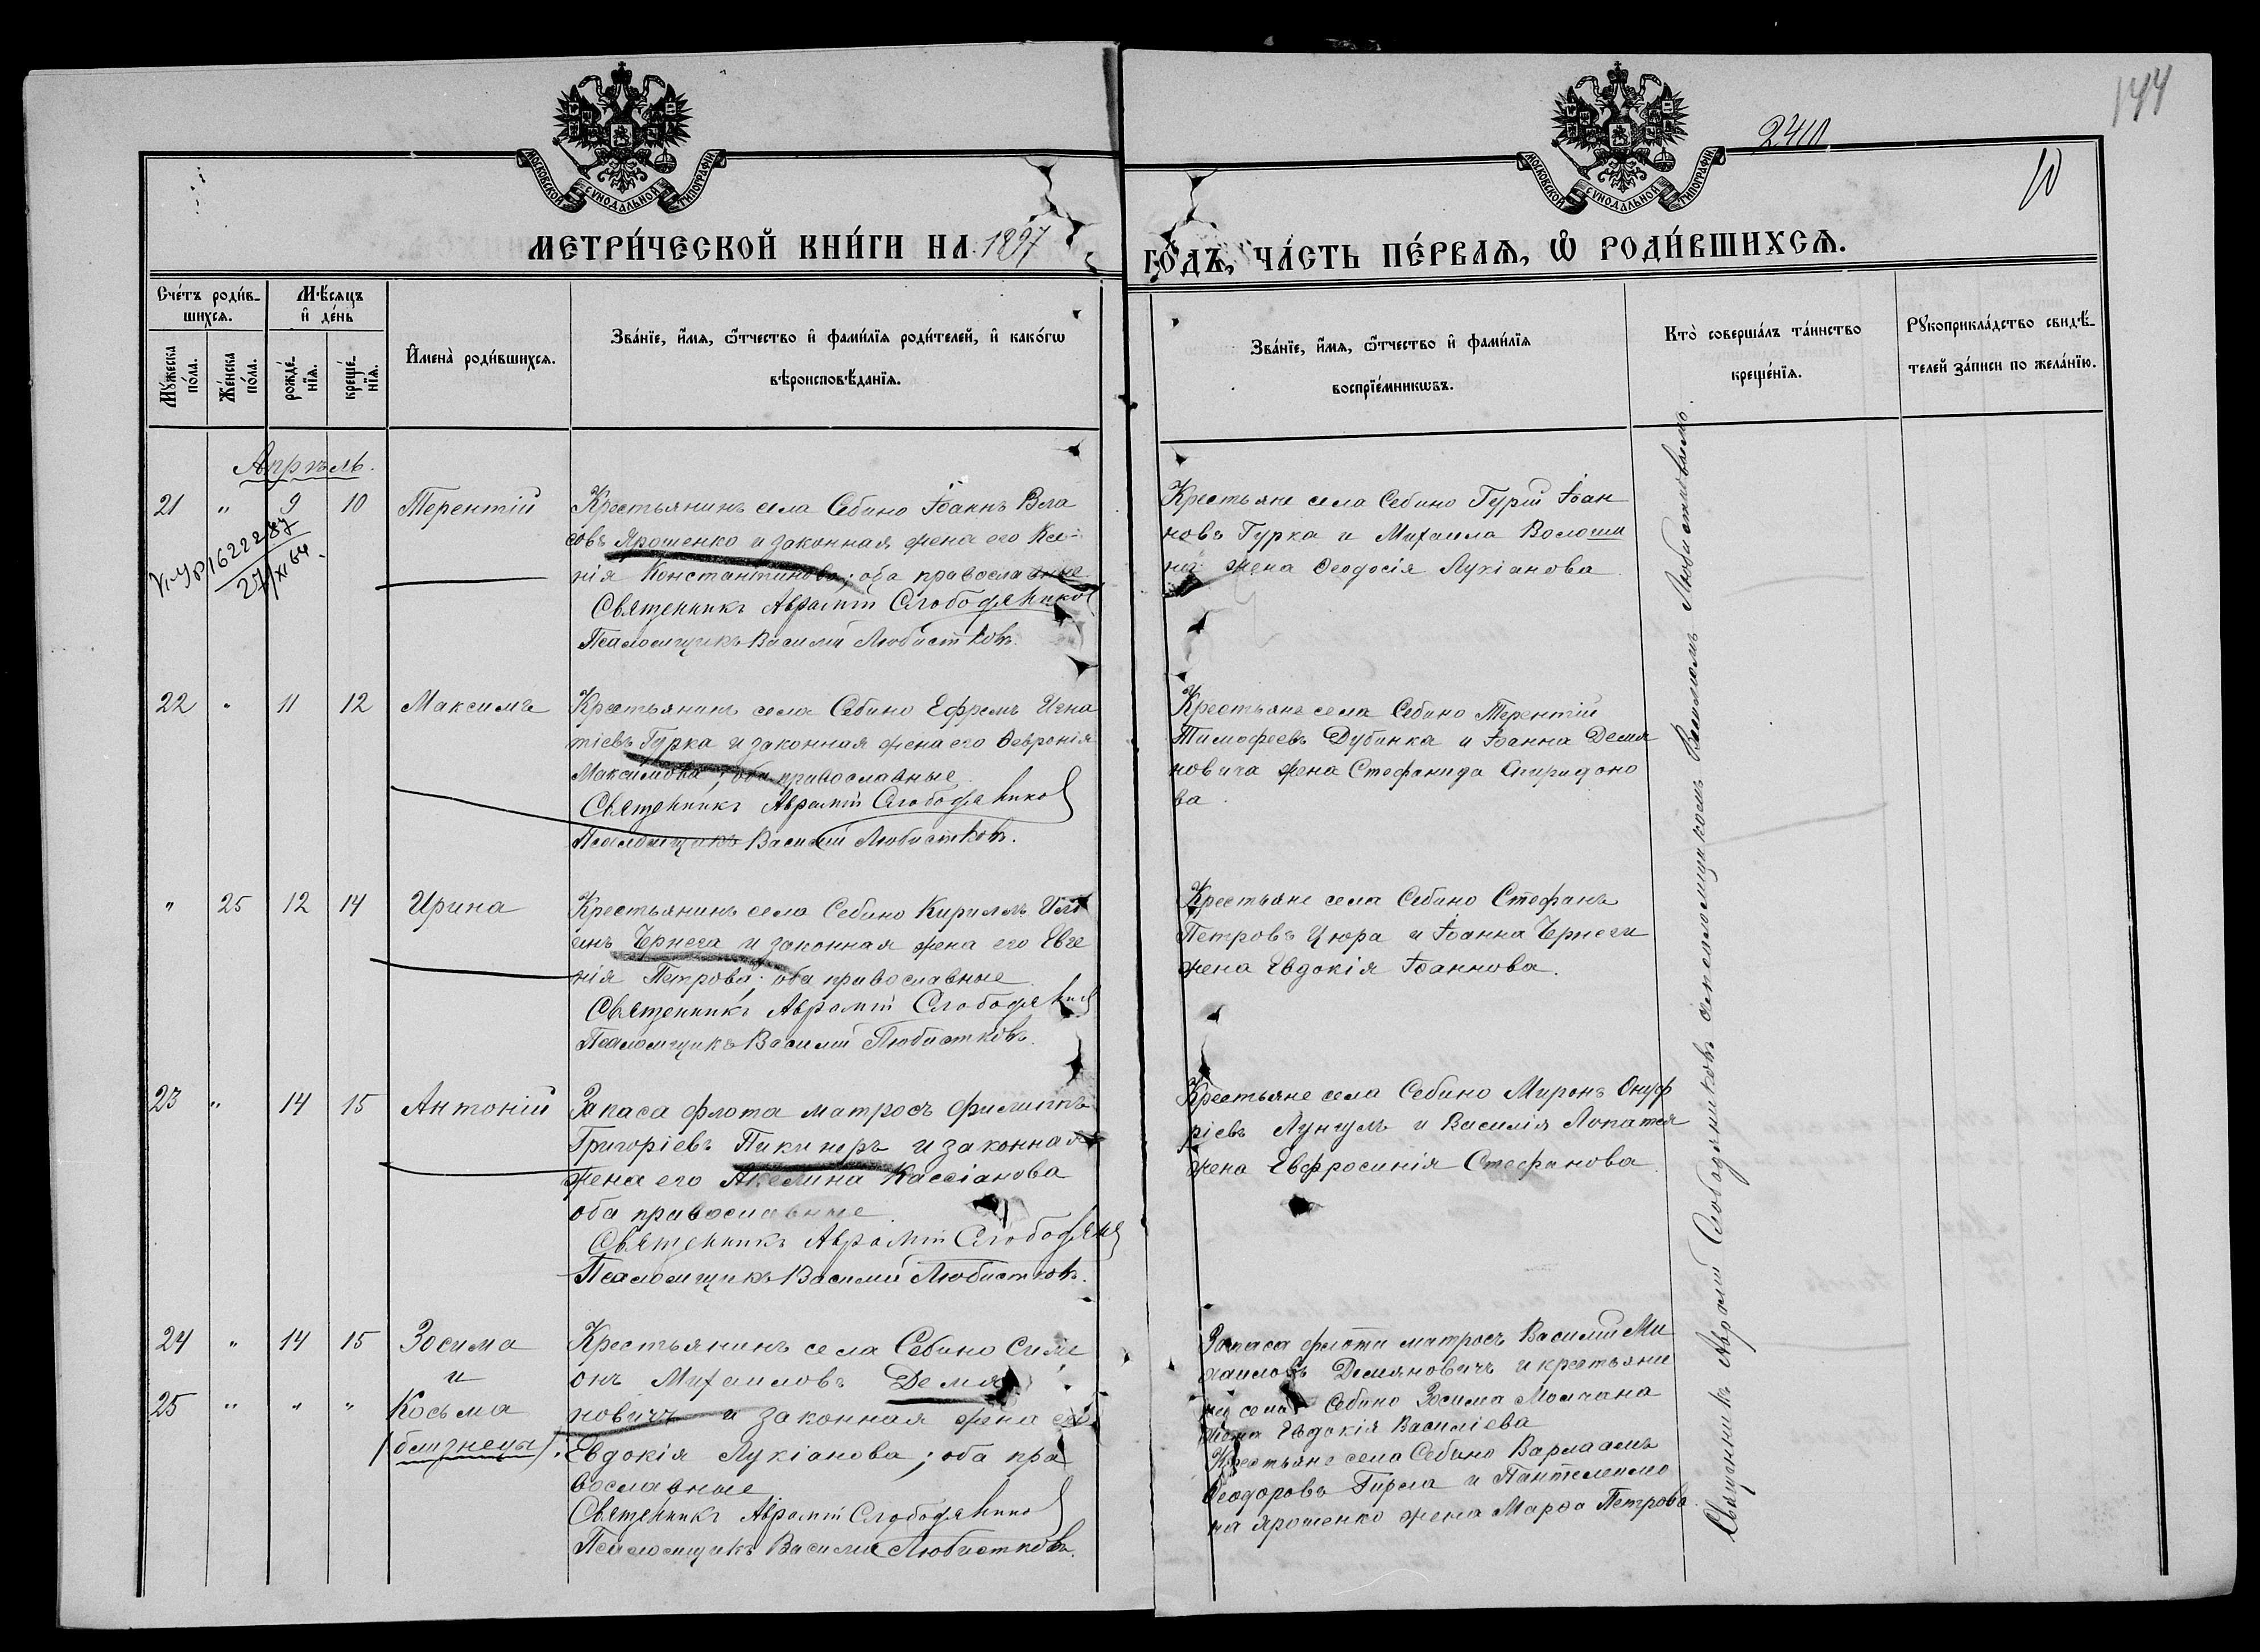 144
2410
10
МОСКОВСКОЙ СѴНОДАЛЬНОЙ ТИПОГРАФІИ
МОСКОВСКОЙ СѴНОДАЛЬНОЙ ТИПОГРАФІИ
МЕТРИ́ЧЕСКОЙ КНИ́ГИ НА 1897 ГО́ДЪ, ЧА́СТЬ ПЕ́РВАѦ, Ѡ҆ РОДИ́ВШИХСѦ.
Сче́тъ роди́в-
шихсѧ.
Мѣ́сѧцъ
и҆ де́нь
Мꙋ́жеска
по́ла.
Же́нска
по́ла.
рожде́-
нїѧ.
креще́-
нїѧ.
И҆мена̀ роди́вшихсѧ.
Зва́нїе, и҆́мѧ, ѻ҆́тчество и҆ фами́лїѧ роди́телей, и҆ како́гѡ
вѣроисповѣ́данїѧ.
Зва́нїе, и҆́мѧ, ѻ҆́тчество и҆ фами́лїѧ
воспрїе́мникѡвъ.
Кто̀ соверша́лъ та́инство
креще́нїѧ.
Рꙋкоприкла́дство свидѣ́-
телей за́писи по жела́нїю.
Апрѣль.
21 " 9 10 Терентій
27/XI 64
Крестьянинъ села Себино Іоаннъ Вла
совъ Ярошенко и законная жена его Ксе-
нія Константинова; оба православные
Священникъ Аврамій Слободяников
Псаломщикъ Василій Любистковъ.
Крестьяне села Себино Гурій Іоан
новъ Гурка и Михаила Волоши
на жена Ѳеодосія Лукіанова
22 " 11 12 Максимъ
Крестьянинъ села Себино Ефремъ Игна
тіевъ Гурка и законная жена его Ѳевронія
Максимова; оба православные
Священникъ Аврамій Слободяников
Псаломщикъ Василій Любистковъ.
Крестьяне села Себино Терентій
Тимофеевъ Дубинка и Іоанна Демя
новича жена Стефанида Спиридоно
ва
" 25 12 14 Ирина
Крестьянинъ села Себино Кириллъ Илі
инъ Чернега и законная жена его Евге
нія Петрова; оба православные
Священникъ Аврамій Слободяник
Псаломщикъ Василій Любистковъ.
Крестьяне села Себино Стефанъ
Петровъ Цюра и Іоанна Чернеги
жена Евдокія Іоаннова.
23 " 14 15 Антоній
Запаса флота матросъ Филиппъ
Григоріевъ Пикинеръ и законная
жена его Акелина Кассіанова
оба православные
Священникъ Аврамій Слободян
Псаломщикъ Василій Любистковъ.
Крестьяне села Себино Миронъ Онуф
ріевъ Лунгулъ и Василія Лопатея
жена Евфросинія Стефанова
24 " 14 15 Зосима
и
25 " " " Косьма
/близнецы/
Крестьянинъ села Себино Симе
онъ Михаиловъ Демя
новичъ и законная жена его
Евдокія Лукіанова; оба пра
вославные
Священникъ Аврамій Слободяников
Псаломщикъ Василій Любистковъ.
Запаса флота матросъ Василій Ми
хаиловъ Демяновичъ и крестьяни
на села Себино Зосима Молчана
жена Евдокія Василіева
Крестьяне села Себино Варлаамъ
Ѳеодоровъ Гирла и Пантелеимо
на Ярошенко жена Марѳа Петрова
Священникъ Аврамій Слободяниковъ съ псаломщикомъ Василіемъ Любистковымъ.